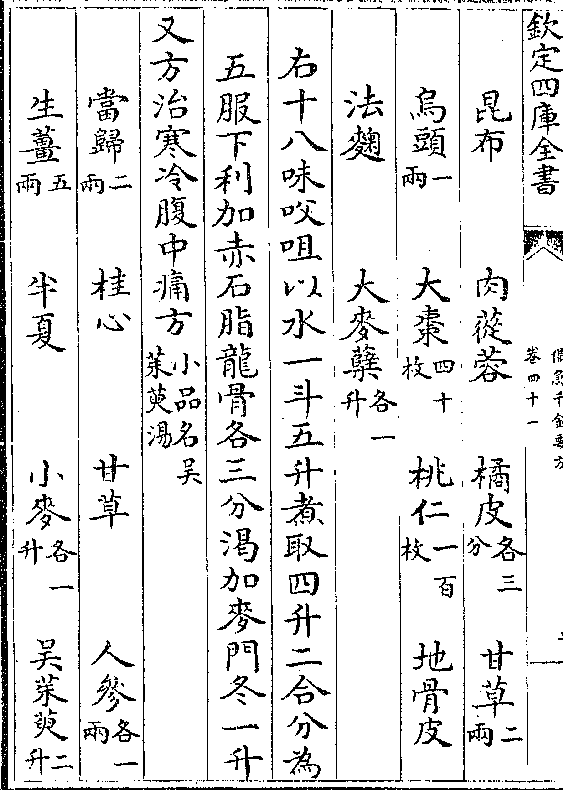 欽定四庫全書
備急千金要方
卷四十一
昆布 肉蓯蓉 橘皮各三分 甘草二兩
烏頭一兩 大棗四十枚 桃仁一百枚 地骨皮
法麴 大麥蘖各一升
右十八味㕮咀以水一斗五升煮取四升二合分為
五服下利加赤石脂龍骨各三分渴加麥門冬一升
又方治寒冷腹中痛方小品名吴茱萸湯
當歸二兩 桂心 甘草 人參各一兩
生薑五兩 半夏 小麥各一升 吴茱萸二升